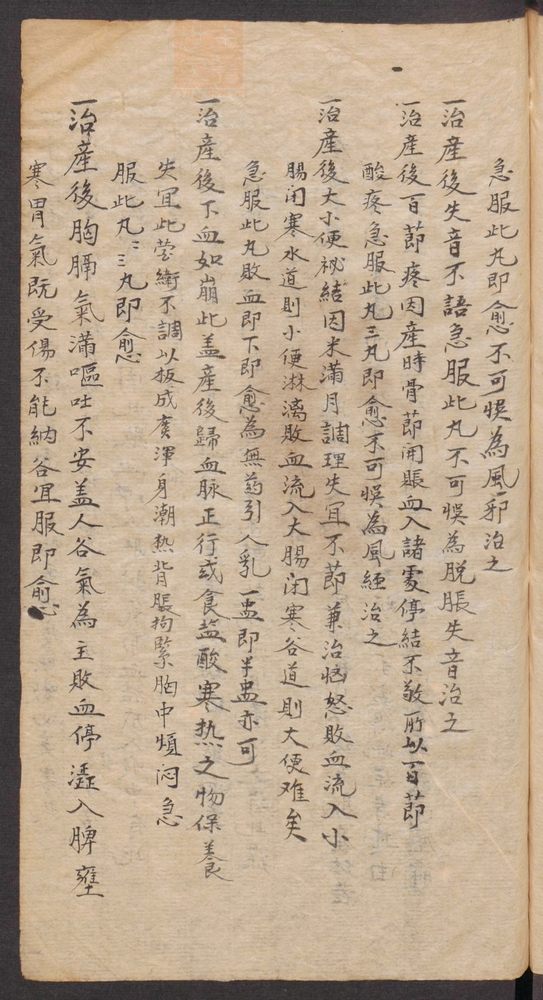 急服此丸即愈不可悮為風邪治之
一治產後失音不語急服此丸不可悮為脱脹失音治之
一治產後百節疼因產時骨節開賬血入諸䖏停結不敬所以百節
酸疼急服此丸三丸即愈不可悮為風經治之
一治產後大小便祕結因米滿月調理失宜不節兼治惱怒敗血流入小
腸闭寒水道則小便淋漓敗血流入大腸闭寒谷道則大便难矣
急服此丸敗血即下即愈為無药引人乳一盅即半盅亦可
一治產後下血如崩此盖產後歸血脉正行或食盐酸寒热之物保養
失宜此荣衛不調以板成寒渾身潮热背脹拘緊胸中煩闷急
服此丸二三丸即愈
一治產後胸膈氣滿嘔吐不安盖人谷氣為主敗血停入脾壅
寒胃氣既受傷不能納谷宜服即愈